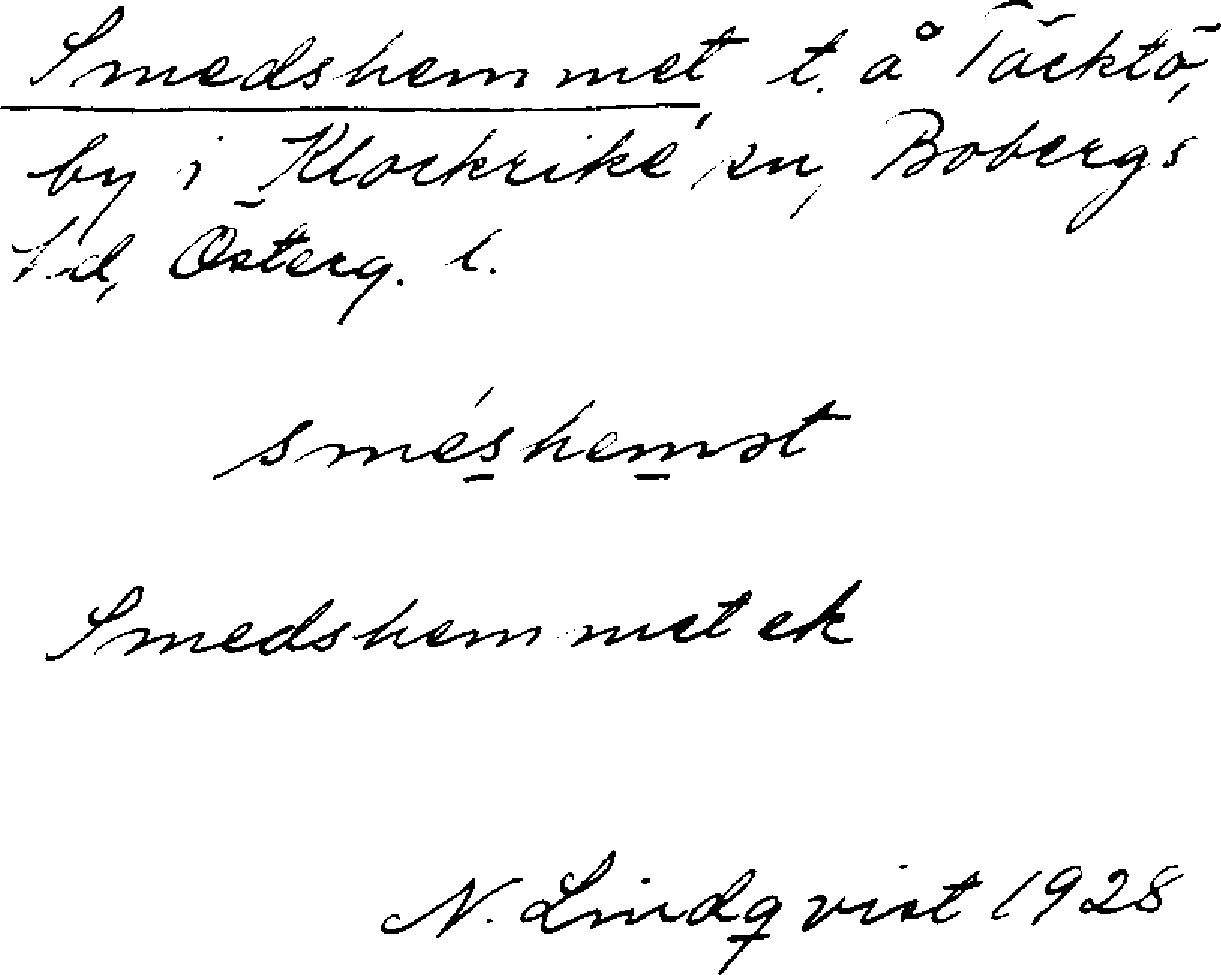 Smedshemmet, t. å Täcktö,
by i Klockrike sn, Bobergs
hd, Österg. l.
sméshemət
Smedshemmet ek
N. Lindqvist 1928